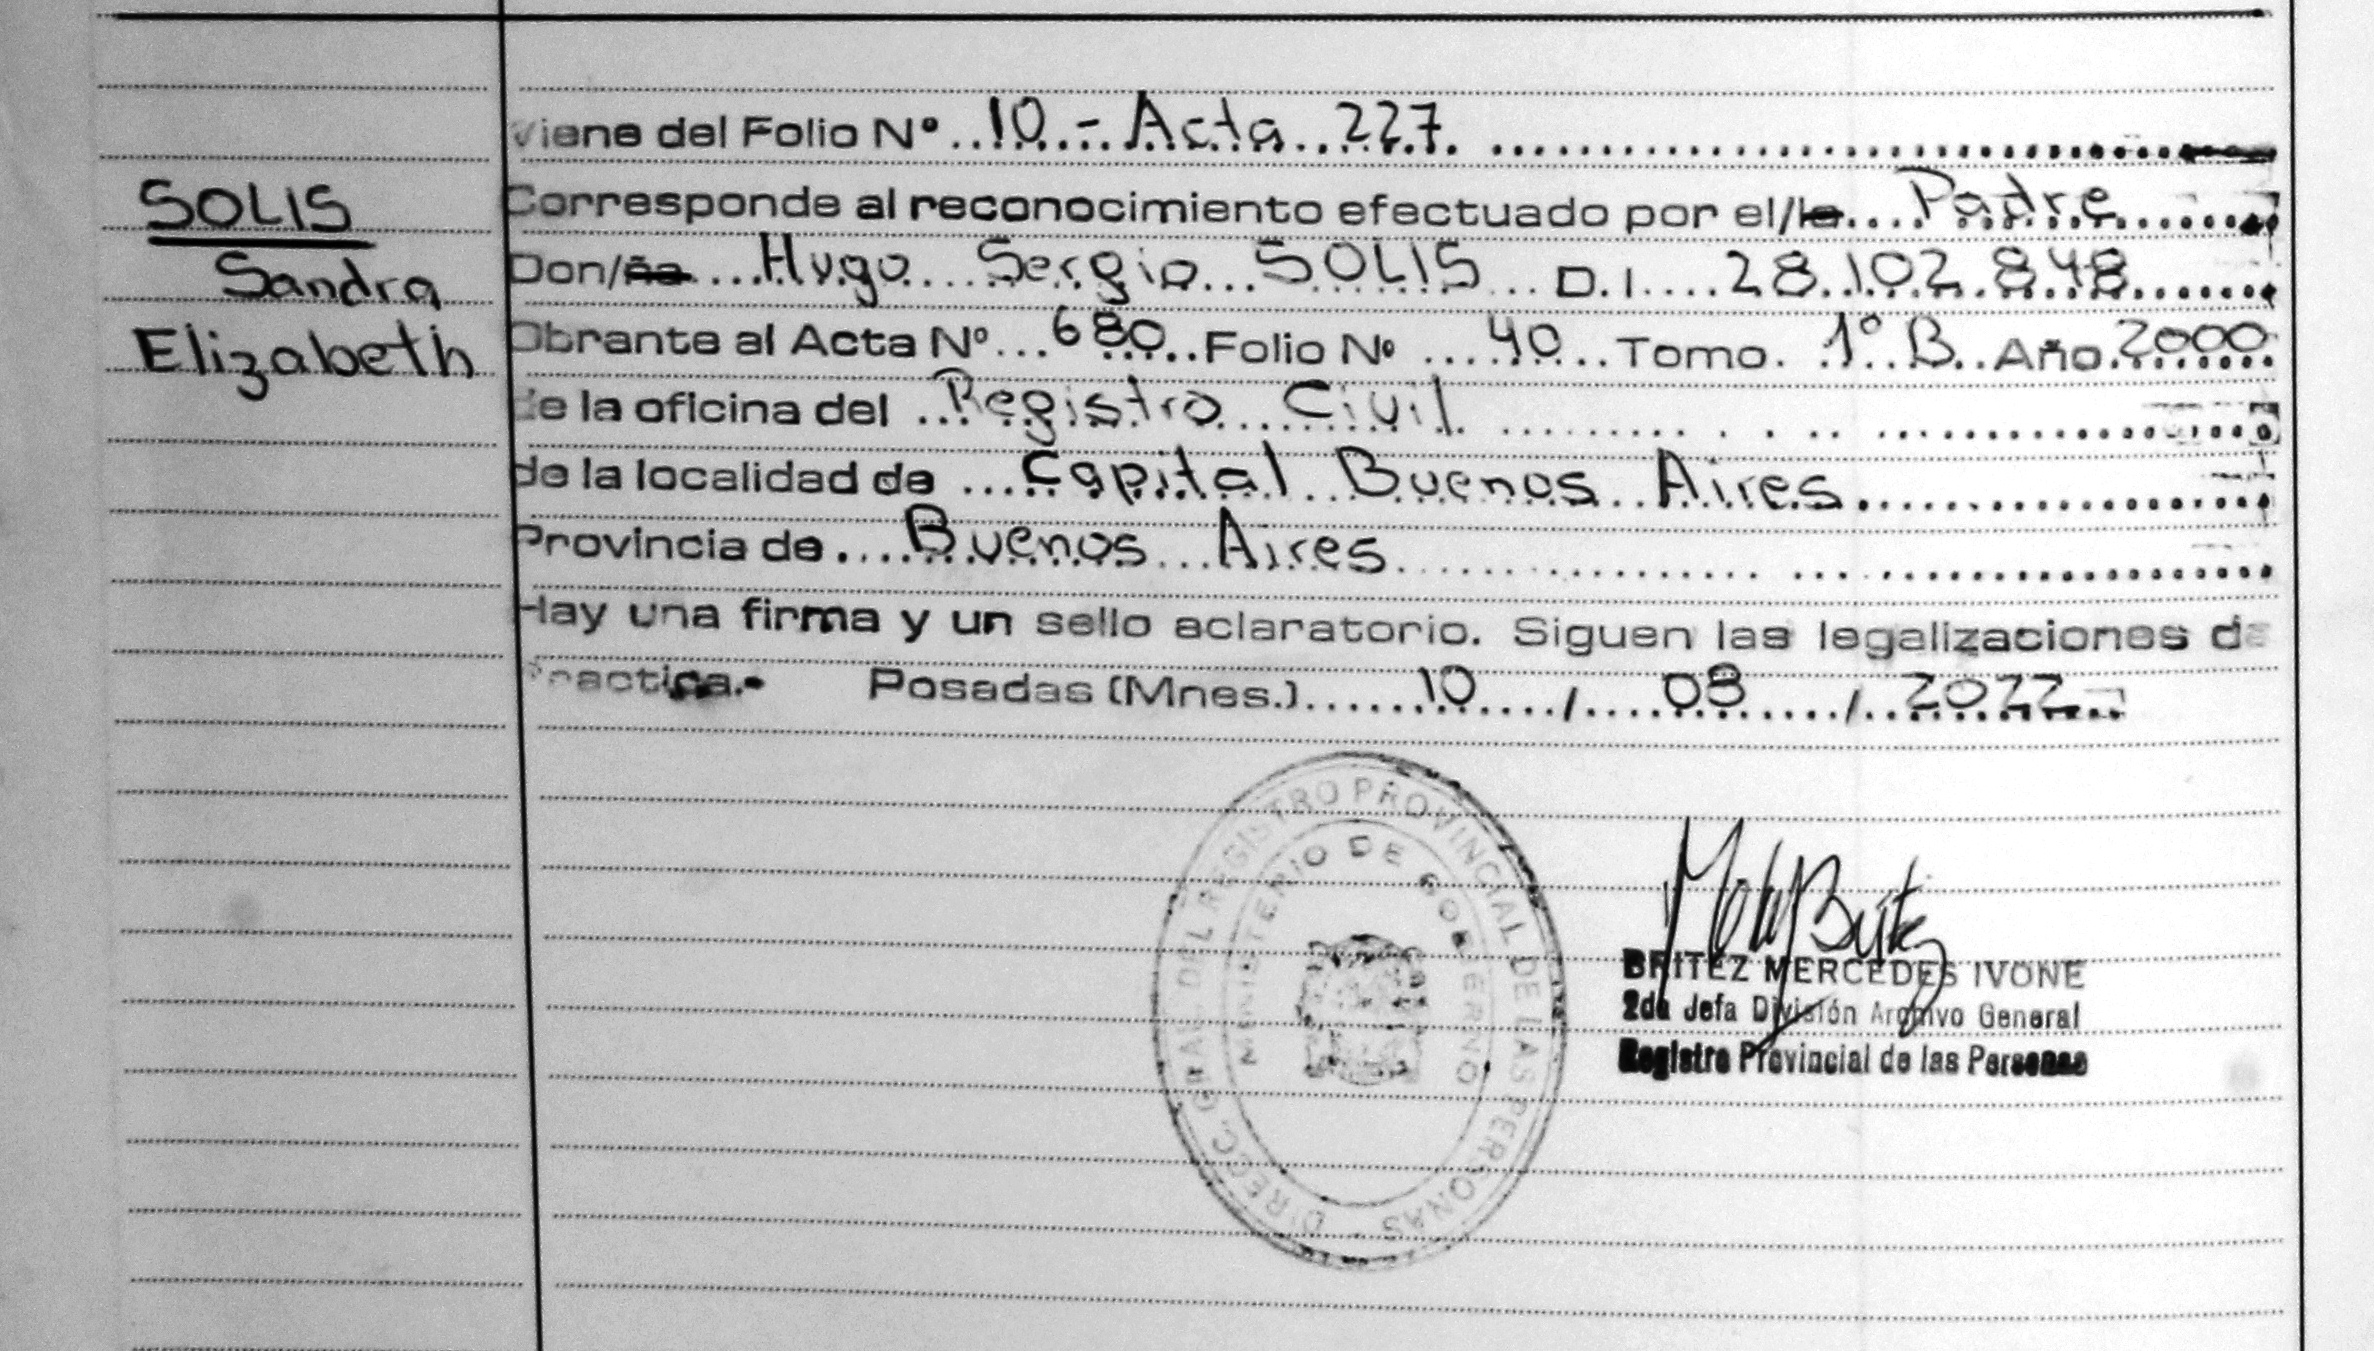 Viene del Folio Nº 10 - Acta 227
SOLIS
Sandra
Elizabeth
Corresponde al reconocimiento efectuado por el/la Padre
Don/ña Hugo Sergio SOLIS D.I. 28.102.848
Obrante al Acta Nº 680 Folio Nº 40 Tomo. 1º B Año 2000
de la oficina del Registro Civil
de la localidad de Capital Buenos Aires
Provincia de Buenos Aires
Hay una firma y un sello aclaratorio. Siguen las legalizaciones de
practica.- Posadas (Mnes.) 10 / 08 / 2022
DIRECC. GRAL DEL REGISTRO PROVINCIAL DE LAS PERSONAS
MINISTERIO DE GOBIERNO
BRITEZ MERCEDES IVONE
2da Jefa División Archivo General
Registro Provincial de las Personas